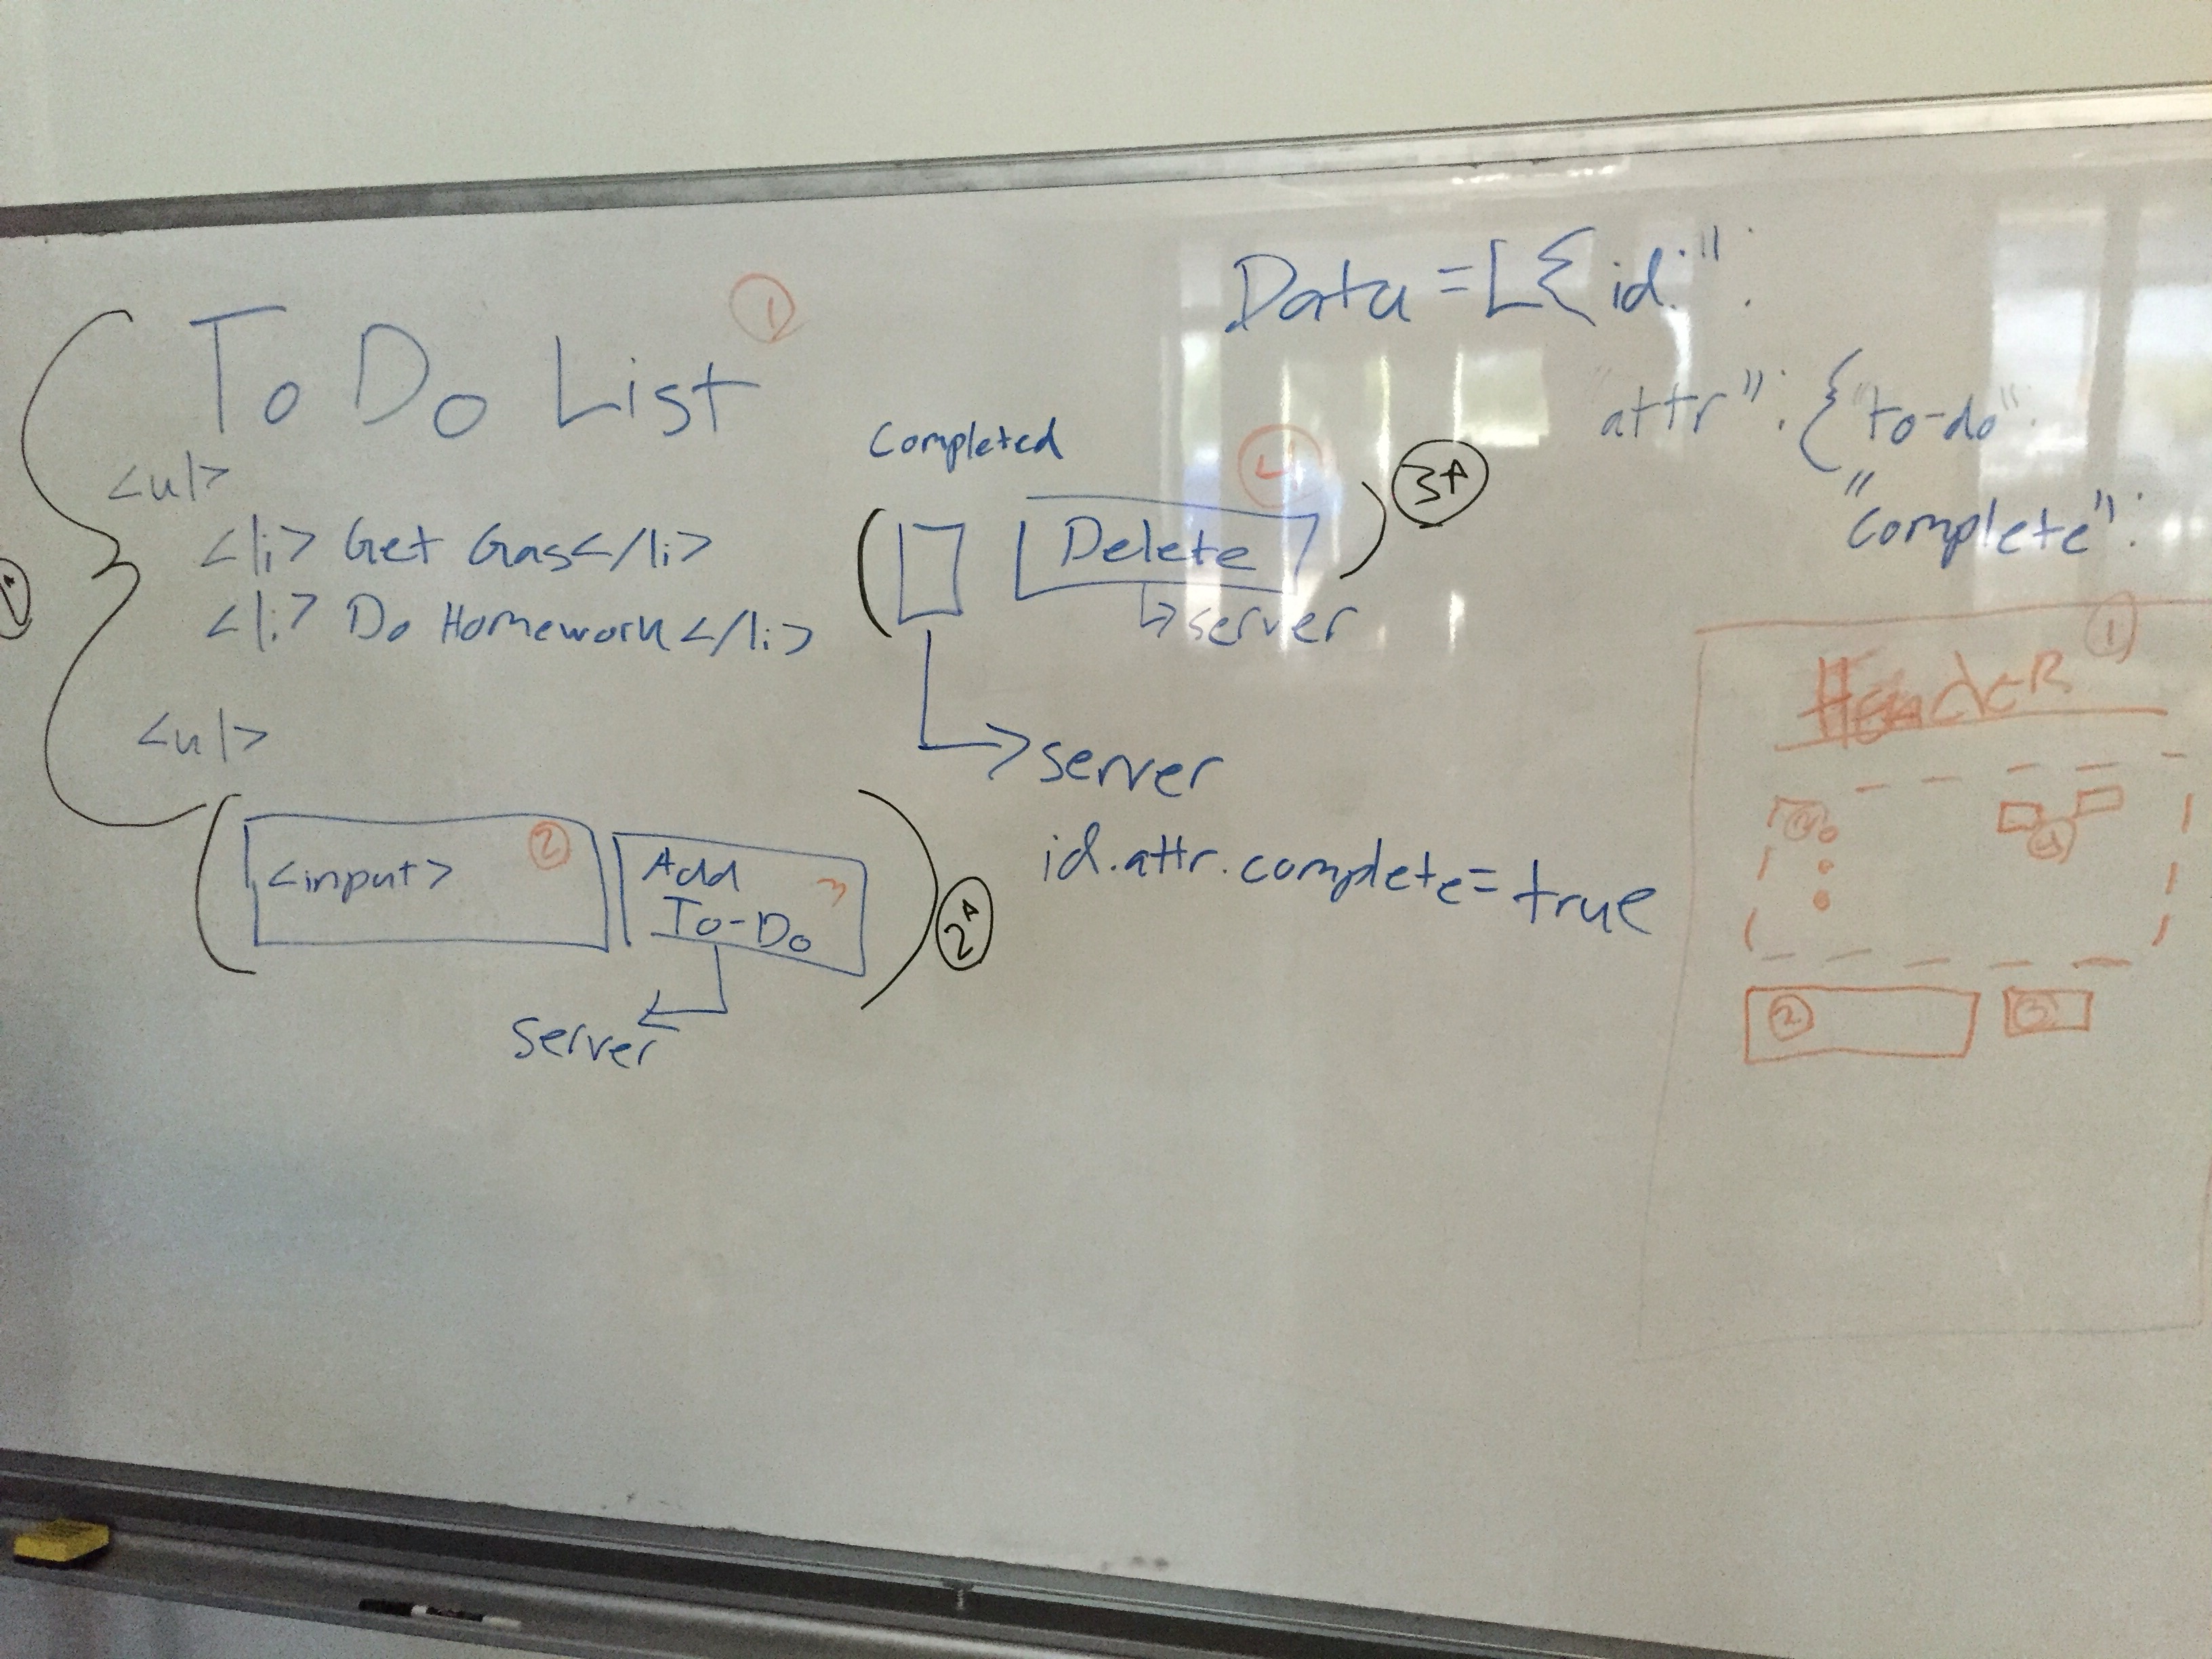 To Do List ①
<ul>
<li> Get Gas</li>
<li> Do Homework</li>
<ul>
<input> ②
Add 3
To-Do
2A
server
Completed
4
Delete
3A
server
server
id.attr.complete=true
Data = [{ id:"   :
"attr": { "to-do":
"complete":
①
Header
4
②
③